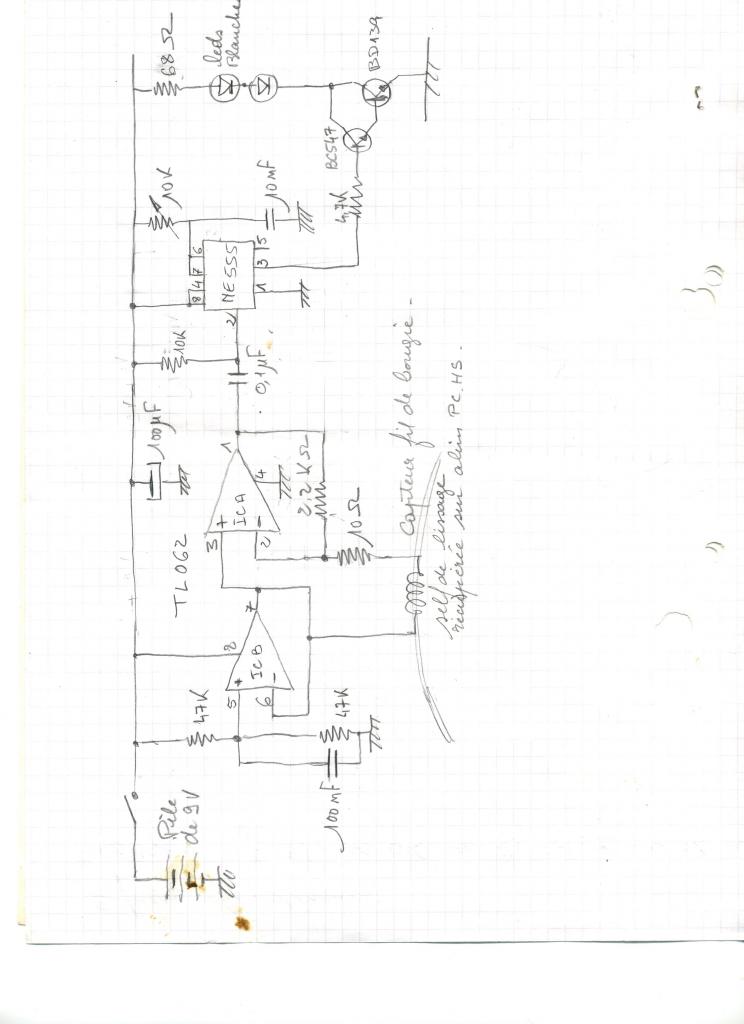 Pile
de 9V
47K
100mF
47K
5
6
+
-
ICB
8
7
TL062
3
2
+
-
ICA
1
4
2,2 KΩ
10Ω
100µF
10K
0,1µF
2
8
4
7
6
NE555
1
3
5
10K
10mF
4,7K
BC547
BD139
68Ω
leds
Blanche
Capteur fil de bougie -
self de lissage
récupérée sur alim PC.HS